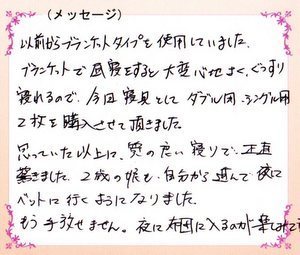 （メッセージ）
以前からブランケットタイプを使用していました。
ブランケットで昼寝をすると大変心地よく、ぐっすり
寝れるので、今回寝具として ダブル用、シングル用
2枚を購入させて頂きました。
思っていた以上に、質の良い寝りで、正直
驚きました。2歳の娘も、自分から進んで夜に
ベットに行くようになりました。
もう手放せません。夜に布団に入るのが楽しみで